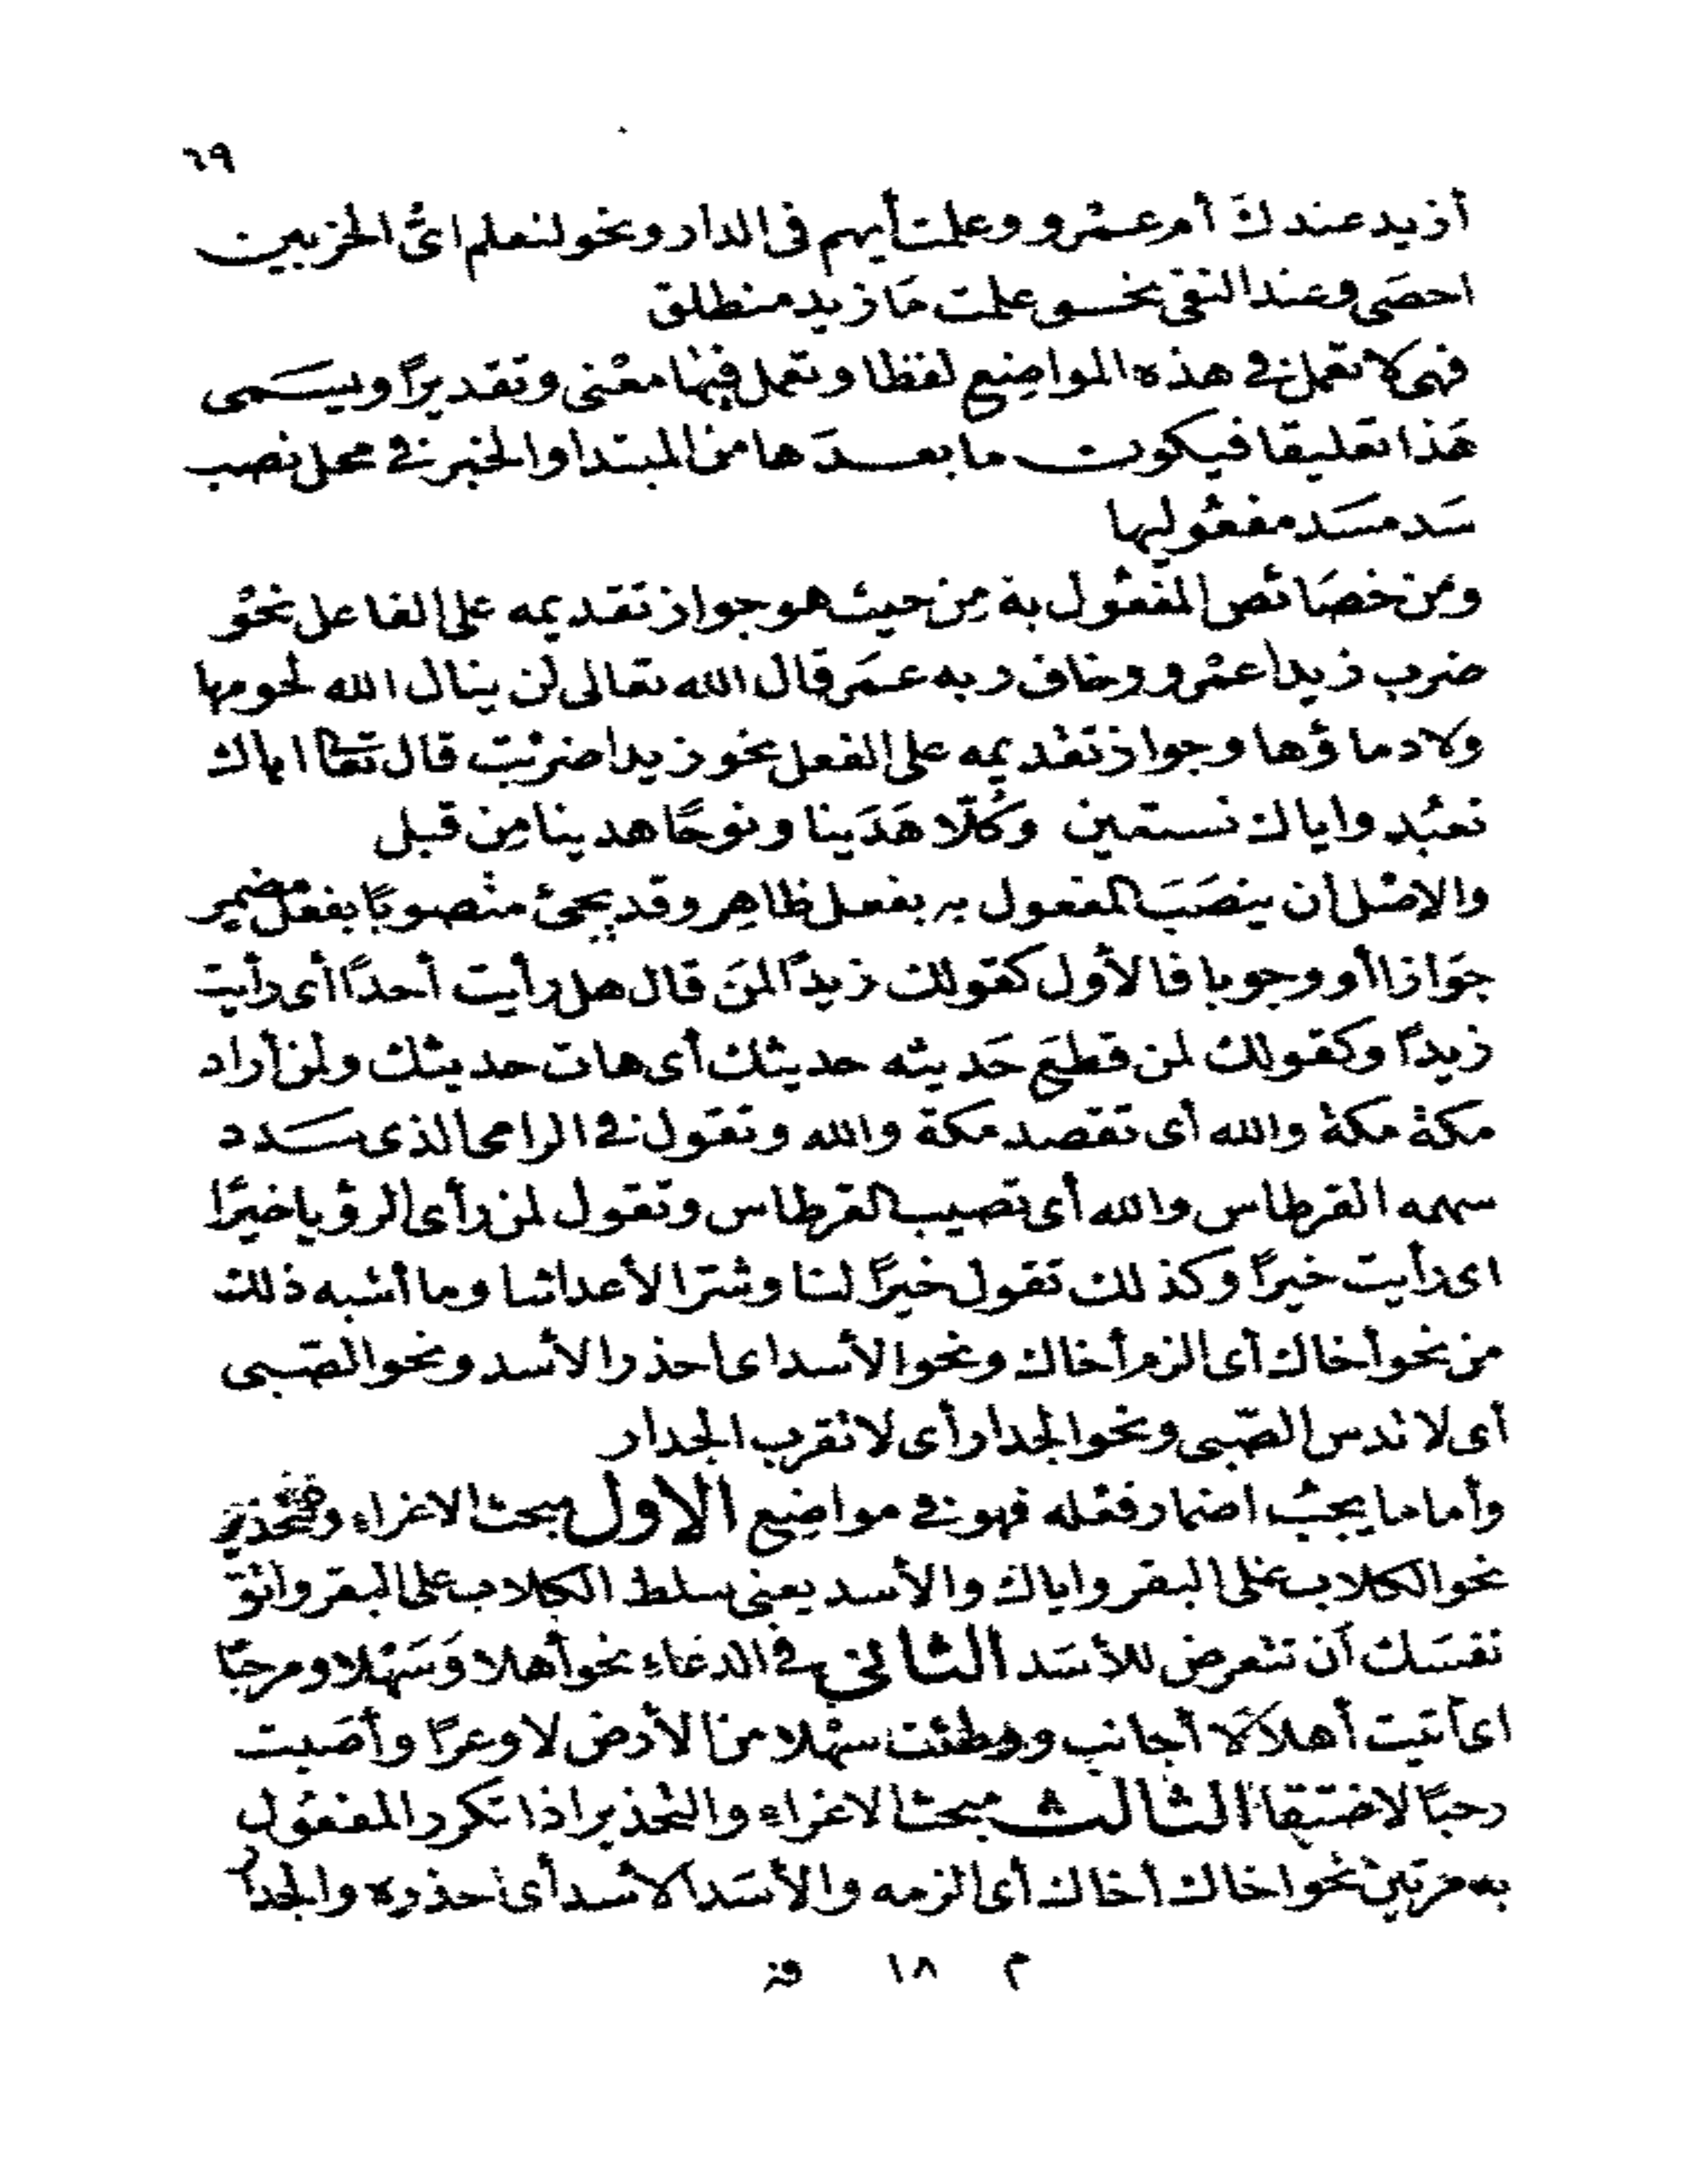 ٦٩
أزيد عندك أم عمرو وعلمت أيهم فى الدار ونحو لنعلم اىّ الحزبين
احصى وعند النفى نحو علمت مَا زيد منطلق
فهى لا تعمل فى هذه المواضع لفظا وتعمل فيهَا معْنى وتقديرًا ويسَمى
هَذا تعليقا فيكون ما بعدَها من المبتدا والخبر فى محل نصب
سَد مسَد مفعُوليها
ومن خصَائص المفعُول به مِن حيث هو جواز تقديمه على الفاعل نحوُ
ضرب زيدا عمْرو وخاف ربه عمَر قال الله تعالى لن ينال الله لحومها
ولا دماؤها وجواز تقديمه على الفعل نحو زيدا ضربْت قال تعَا اياك
نعبُد واياك نستعين وَكُلّا هَدَينا ونوحًا هدينا مِن قبل
والاصْل أن ينصَبَ المفعول به بفعل ظاهِر وقد يجئ منْصوبًا بفعل مضمر
جوَازا أو وجوبا فالأول كقولك زيدًا لمنَ قال هل رأيت أحدًا أى رأيت
زيدًا وكقولك لمن قطع حَديثه حديثك أى هات حديثك ولمن أراد
مكة مكة والله أى تقصد مكة والله وتقول فى الرامى الذى سَدد
سهمه القرطاس والله أى تصيب القرطاس وتقول لمن رأى الرؤيا خيرًا
اى رأيت خيرًا وكذلك تقول خيرًا لنا وشرّا لأعدائنا وما أشبه ذلك
من نحو أخاك أى الزم أخاك ونحو الأسد اى احذر الأسد ونحو الصّبى
أى لا تدس الصّبى ونحو الجدار أى لا تقرب الجدار
وأما ما يجبُ اضمار فعْله فهو فى مواضع الاول مبحث الاغراء والتحذير
نحو الكلاب على البقر واياك والأسد يعنى سلط الكلاب على البقر واتق
نفسَك أن تتعرض للأسَد الثانى فى الدعَاء نحو أهلا وَسَهْلا ومرحبًا
اى أتيت أهلاً لا أجانب ووطئت سهْلا من الأرض لا وعرًا وأصَبت
رحبًا لا ضيقا الثالث مبحث الاغراء والتحذير اذا تكرر المفعُول
به مرتين نحو اخاك أخاك أى الزمه والأسَد الأسد أى احذره والجدار
م ١٨ فر